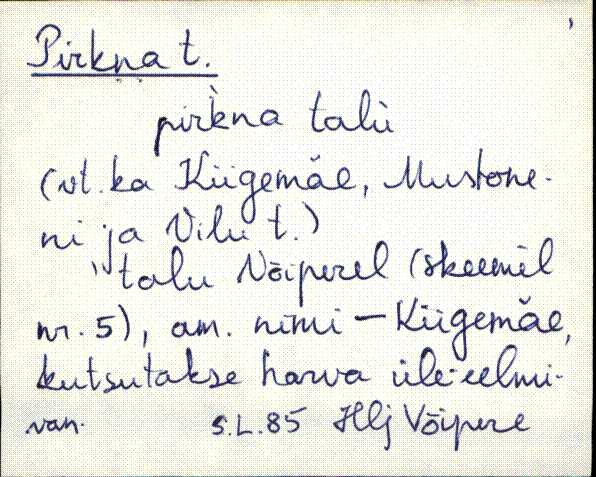 Pirkna t.
pirk̀na talù
(vt. ka Kiigemäe, Mustone-
ni ja Vilu t.)
talu Võiperel (skeemil
nr. 5), am. nimi – Kiigemäe,
kutsutakse harva üle-eelmi-
van. S.L. 85 Hlj Võipere